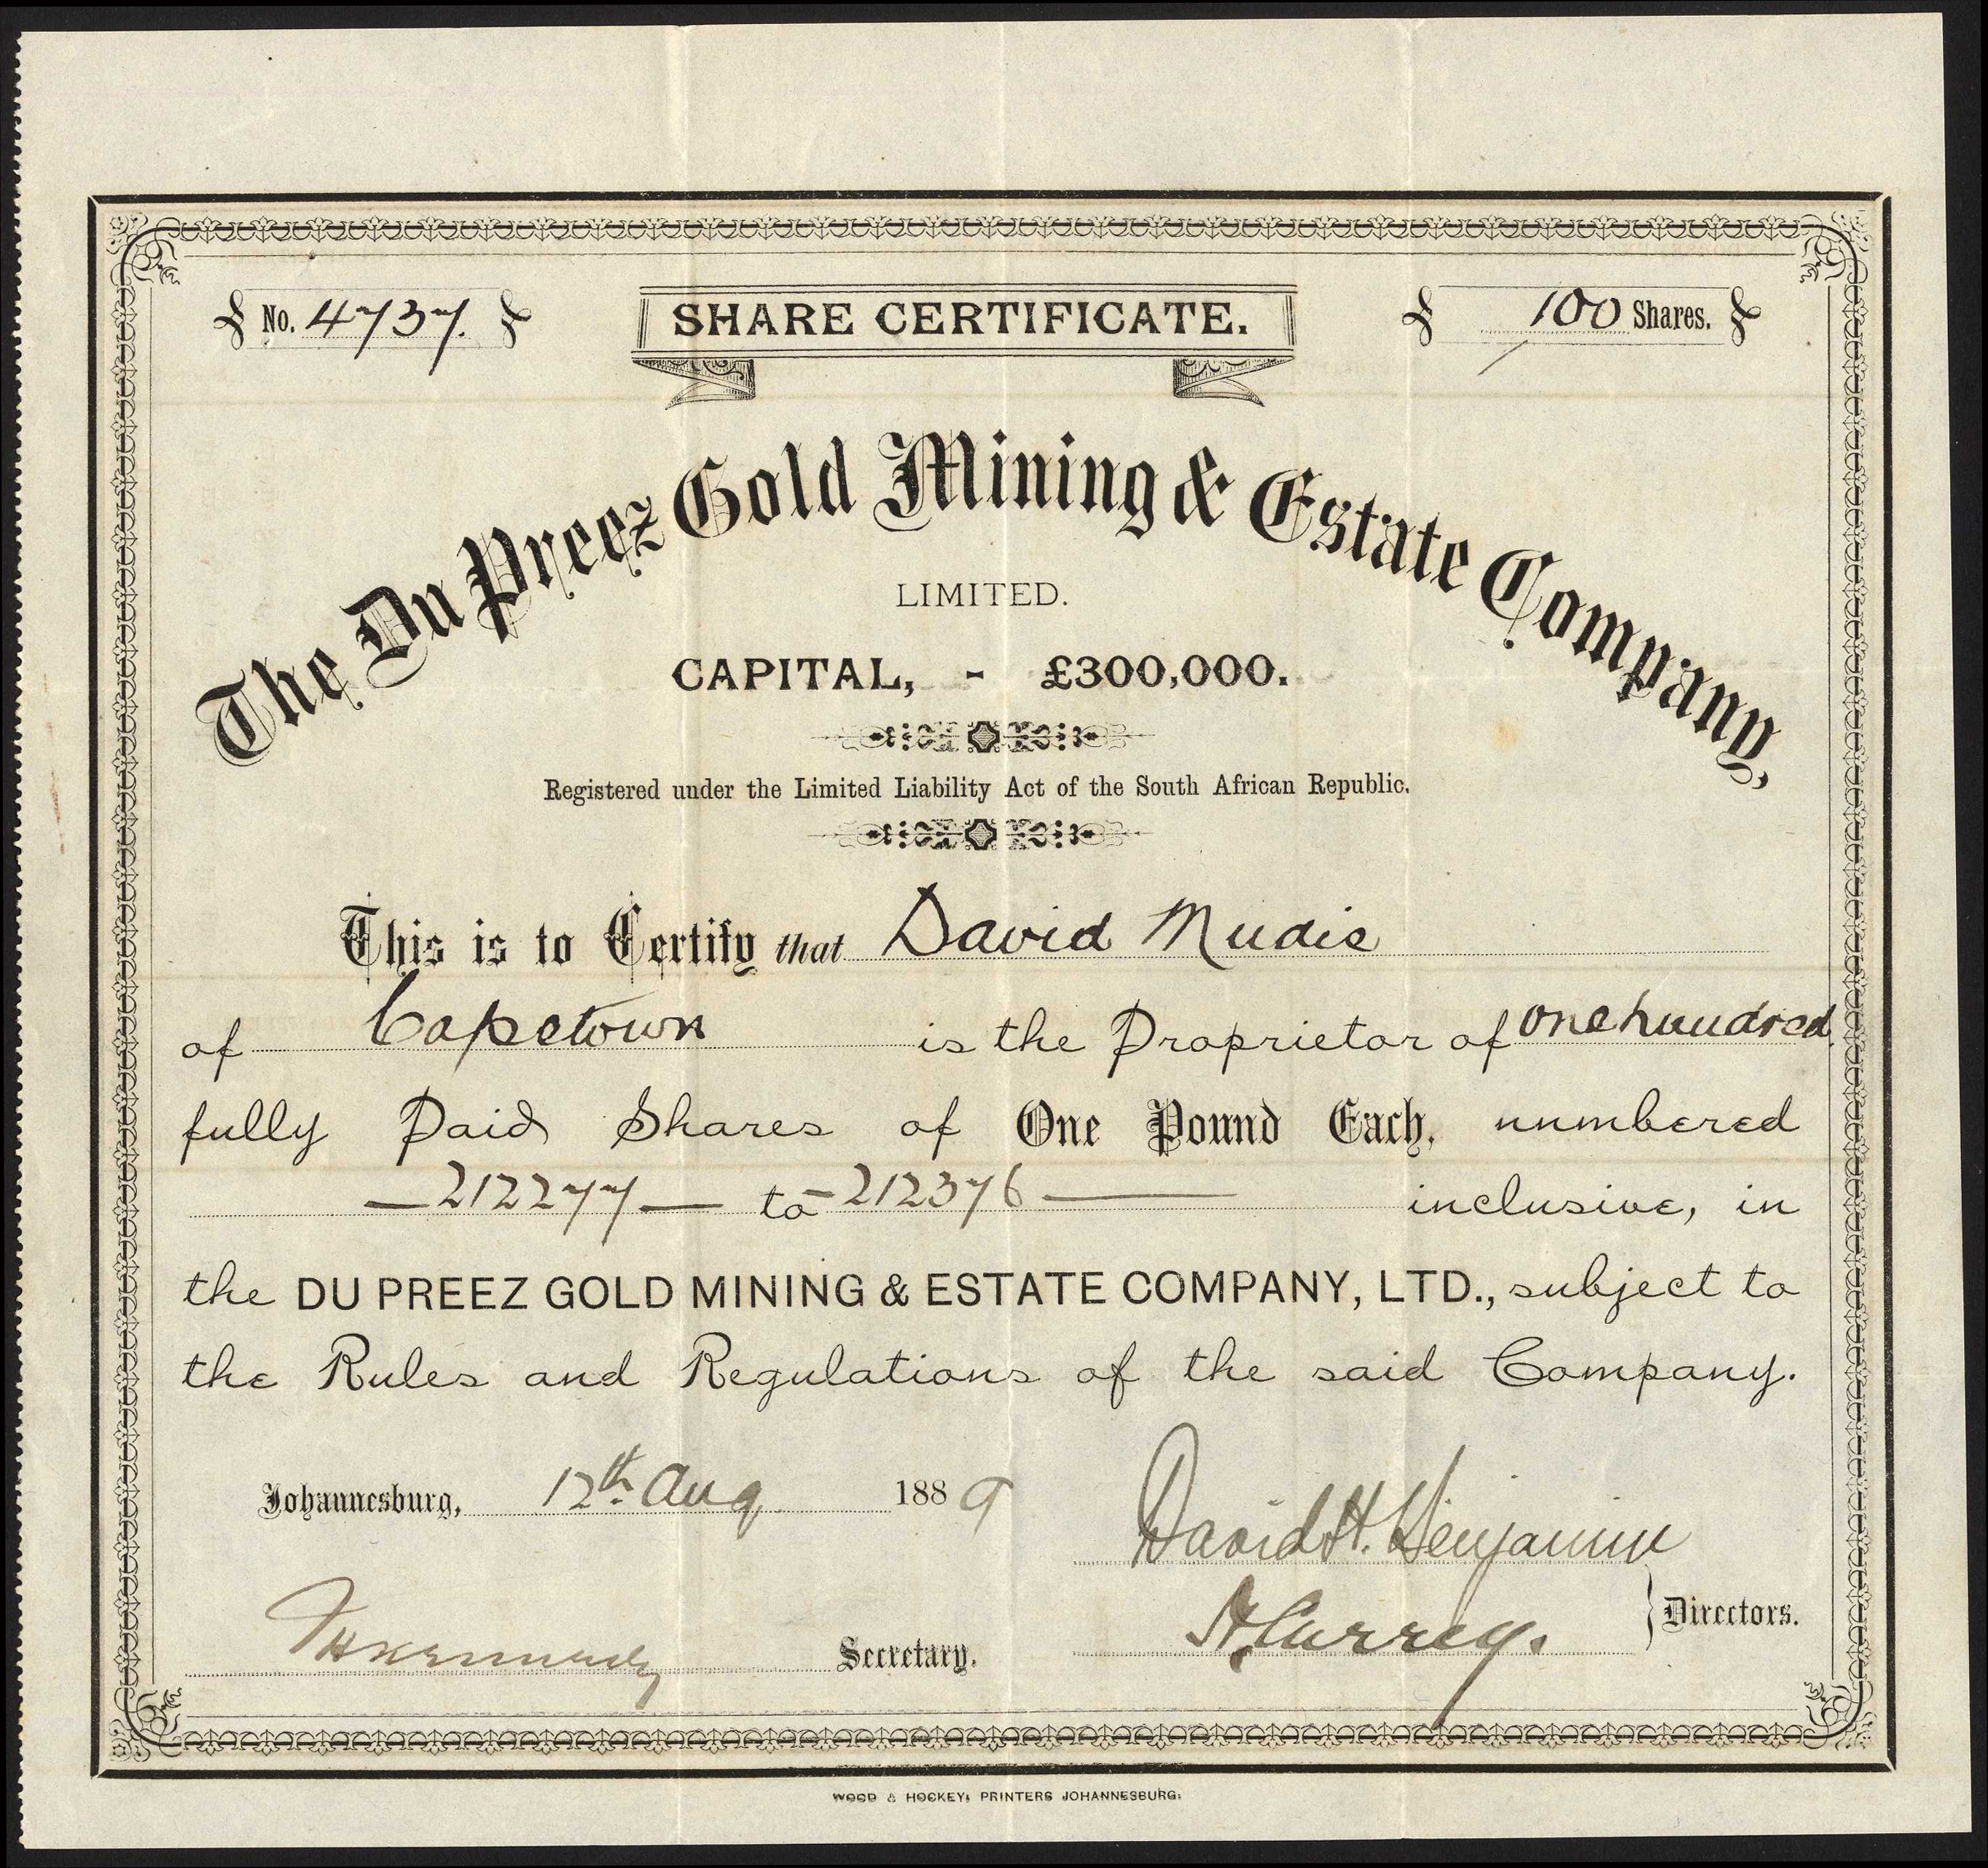 No. 4737.
SHARE CERTIFICATE.
100 Shares.
The Du Preez Gold Mining & Estate Company,
LIMITED.
CAPITAL, - £300,000.
Registered under the Limited Liability Act of the South African Republic.
This is to Certify that David Mudie
of Capetown is the Proprietor of one hundred
fully Paid Shares of One Pound Each, numbered
— 212277 — to – 212376 — inclusive, in
the DU PREEZ GOLD MINING & ESTATE COMPANY, LTD., subject to
the Rules and Regulations of the said Company.
Johannesburg, 12th Aug 1889
David H. Benjamin
H. Currey.
Directors.
Secretary.
WOOD & HOCKEY, PRINTERS JOHANNESBURG.